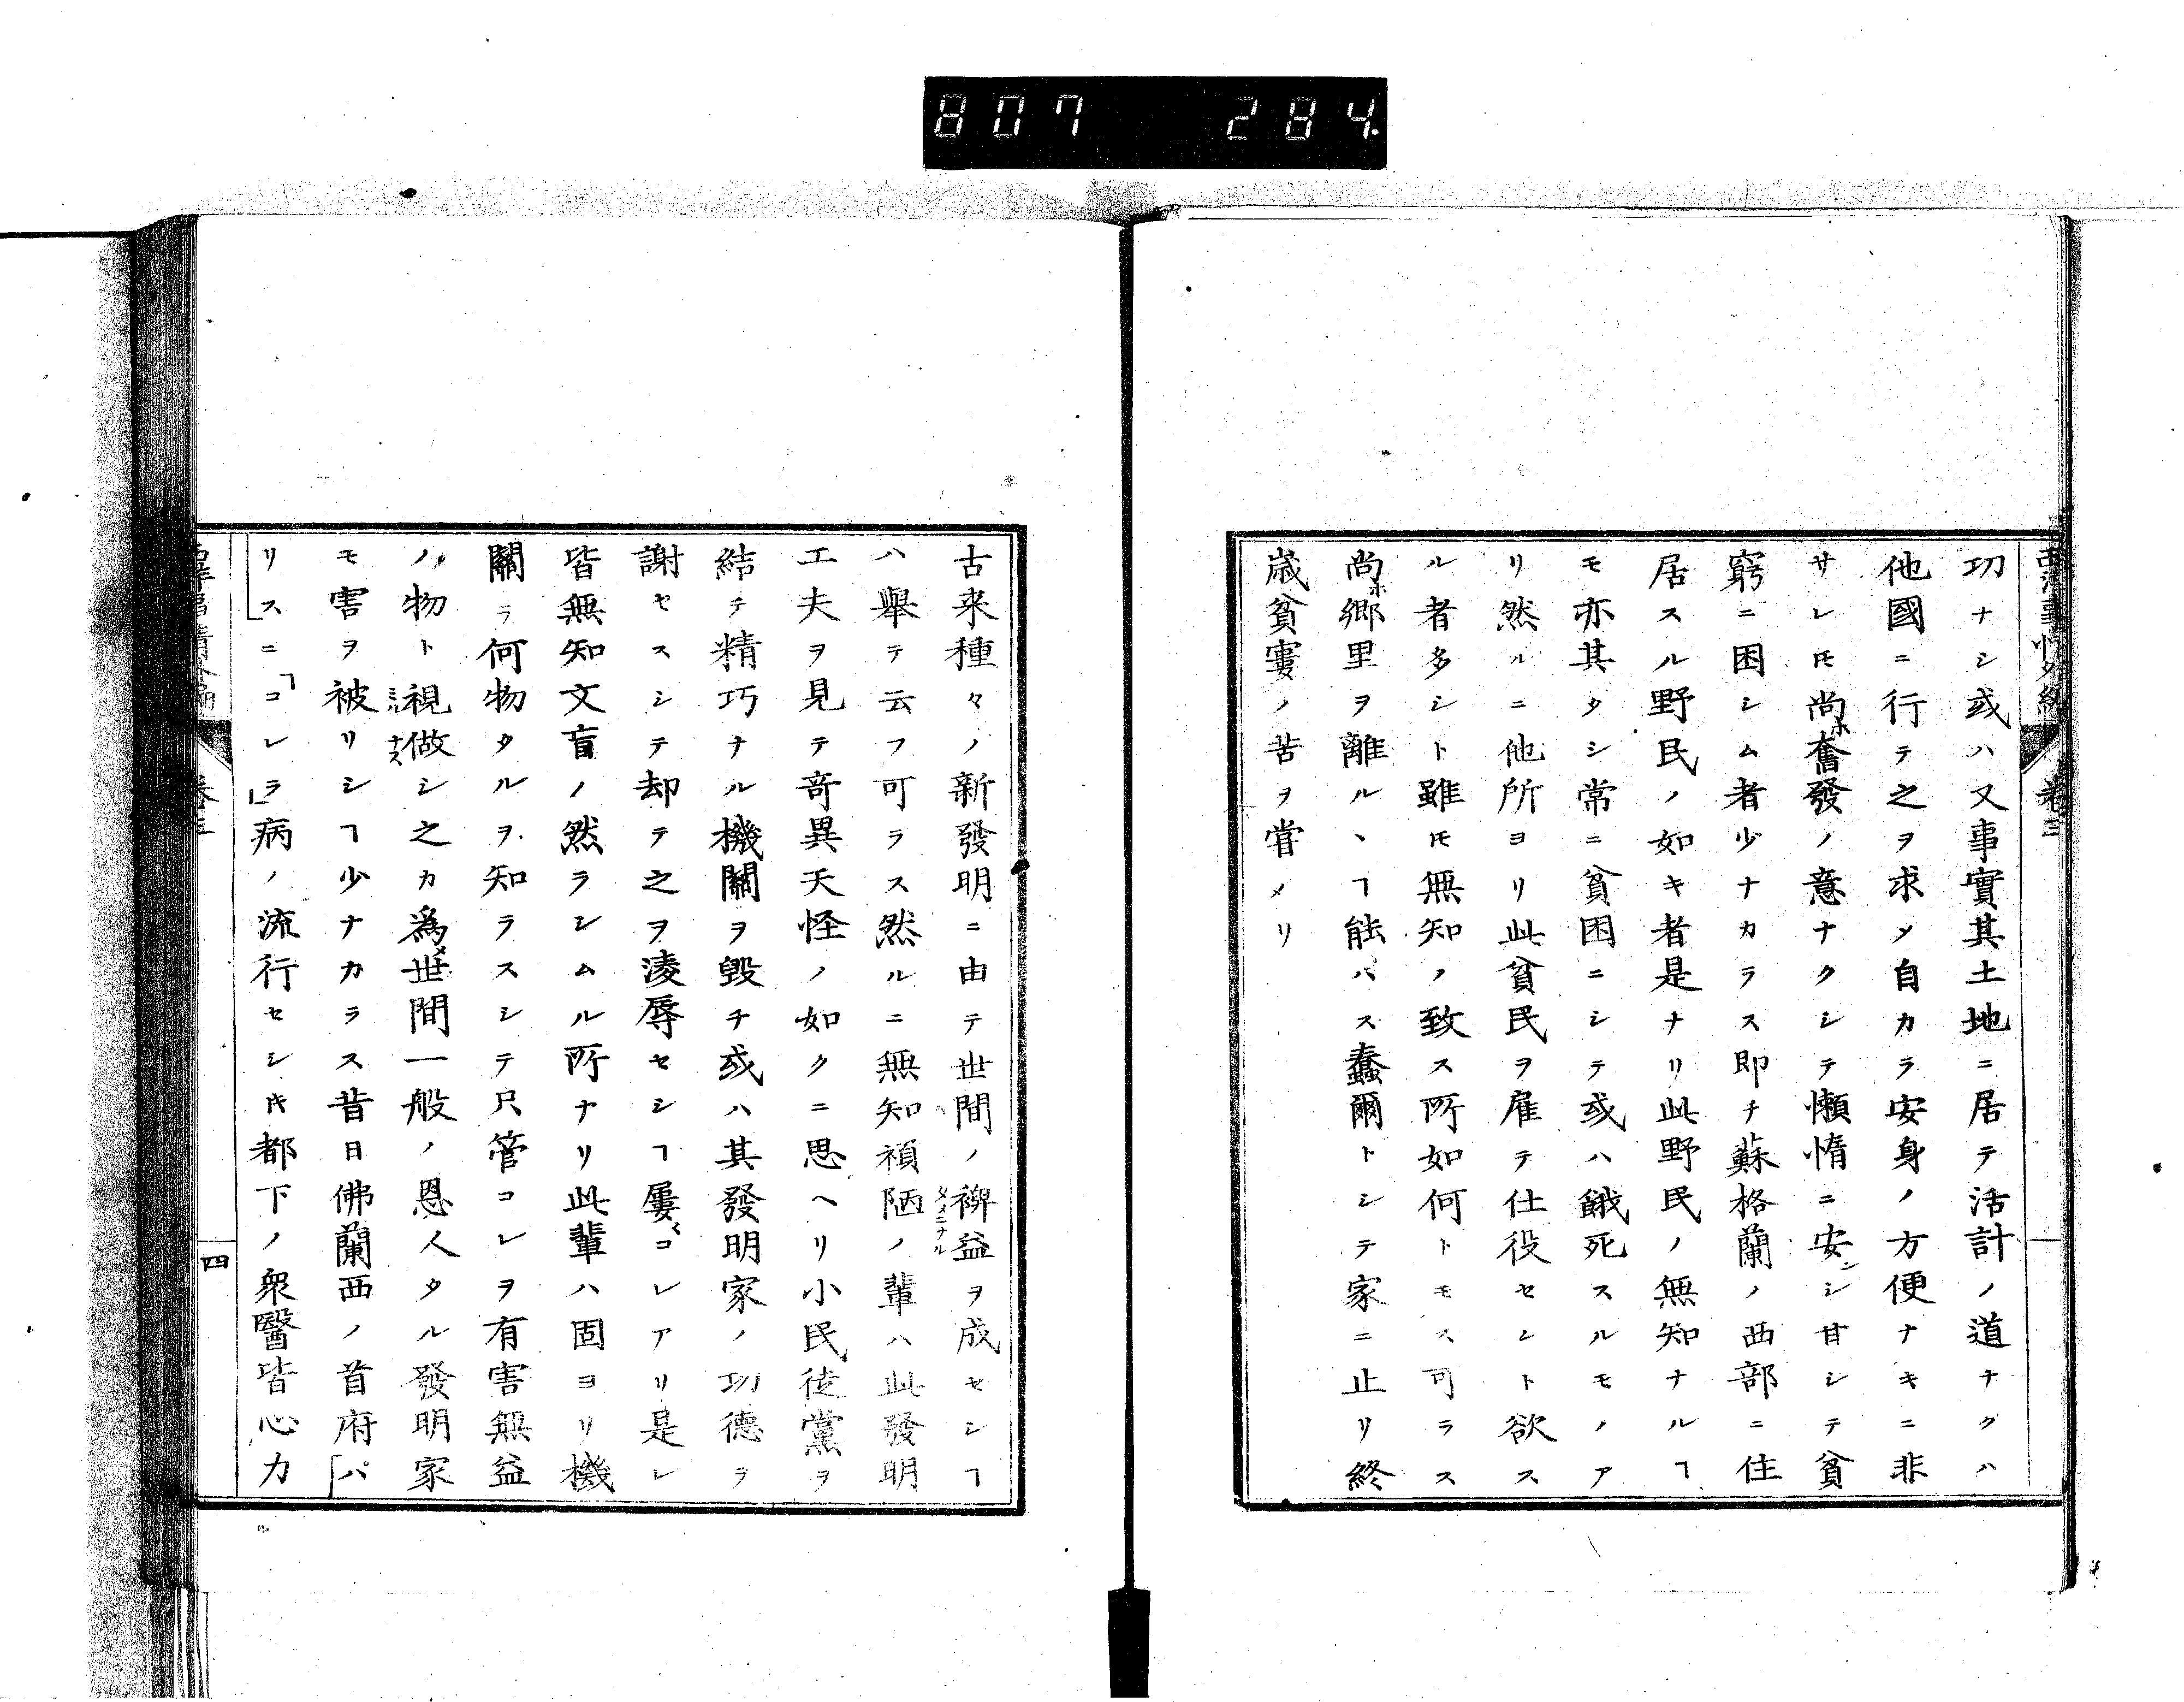 807 284.
西洋事情外編 卷三
功ナシ或ハ又事實其土地ニ居テ活計ノ道ナクハ
他國ニ行テ之ヲ求メ自カラ安身ノ方便ナキニ非
サレ𪜈尚ホ奮發ノ意ナクシテ懶惰ニ安ンシ甘シテ貧
窮ニ困シム者少ナカラス即チ蘇格蘭ノ西部ニ住
居スル野民ノ如キ者是ナリ此野民ノ無知ナルヿ
モ亦其タシ常ニ貧困ニシテ或ハ餓死スルモノア
リ然ルニ他所ヨリ此貧民ヲ雇テ仕役セント欲ス
ル者多シト雖𪜈無知ノ致ス所如何トモス可ラス
尚ホ郷里ヲ離ルヽヿ能ハス蠢爾トシテ家ニ止リ終
歳貧窶ノ苦ヲ嘗メリ
古来種々ノ新發明ニ由テ世間ノ裨益ヲ成セシヿ
タメニナル
ハ舉テ云フ可ラス然ルニ無知頑陋ノ輩ハ此發明
工夫ヲ見テ竒異天怪ノ如クニ思ヘリ小民徒黨ヲ
結テ精巧ナル機關ヲ毀チ或ハ其發明家ノ功德ヲ
謝セスシテ却テ之ヲ凌辱セシヿ屢〻コレアリ是レ
皆無知文盲ノ然ラシムル所ナリ此輩ハ固ヨリ機
關ラ何物タルヲ知ラスシテ只管コレヲ有害無益
ノ物ト視做シ之カ爲メ世間一般ノ恩人タル發明家
ミル ナス
モ害ヲ被リシヿ少ナカラス昔日佛蘭西ノ首府「パ
リス」ニ「コレラ」病ノ流行セシ𪜈都下ノ衆醫皆心力
西洋事情外編 卷三 四